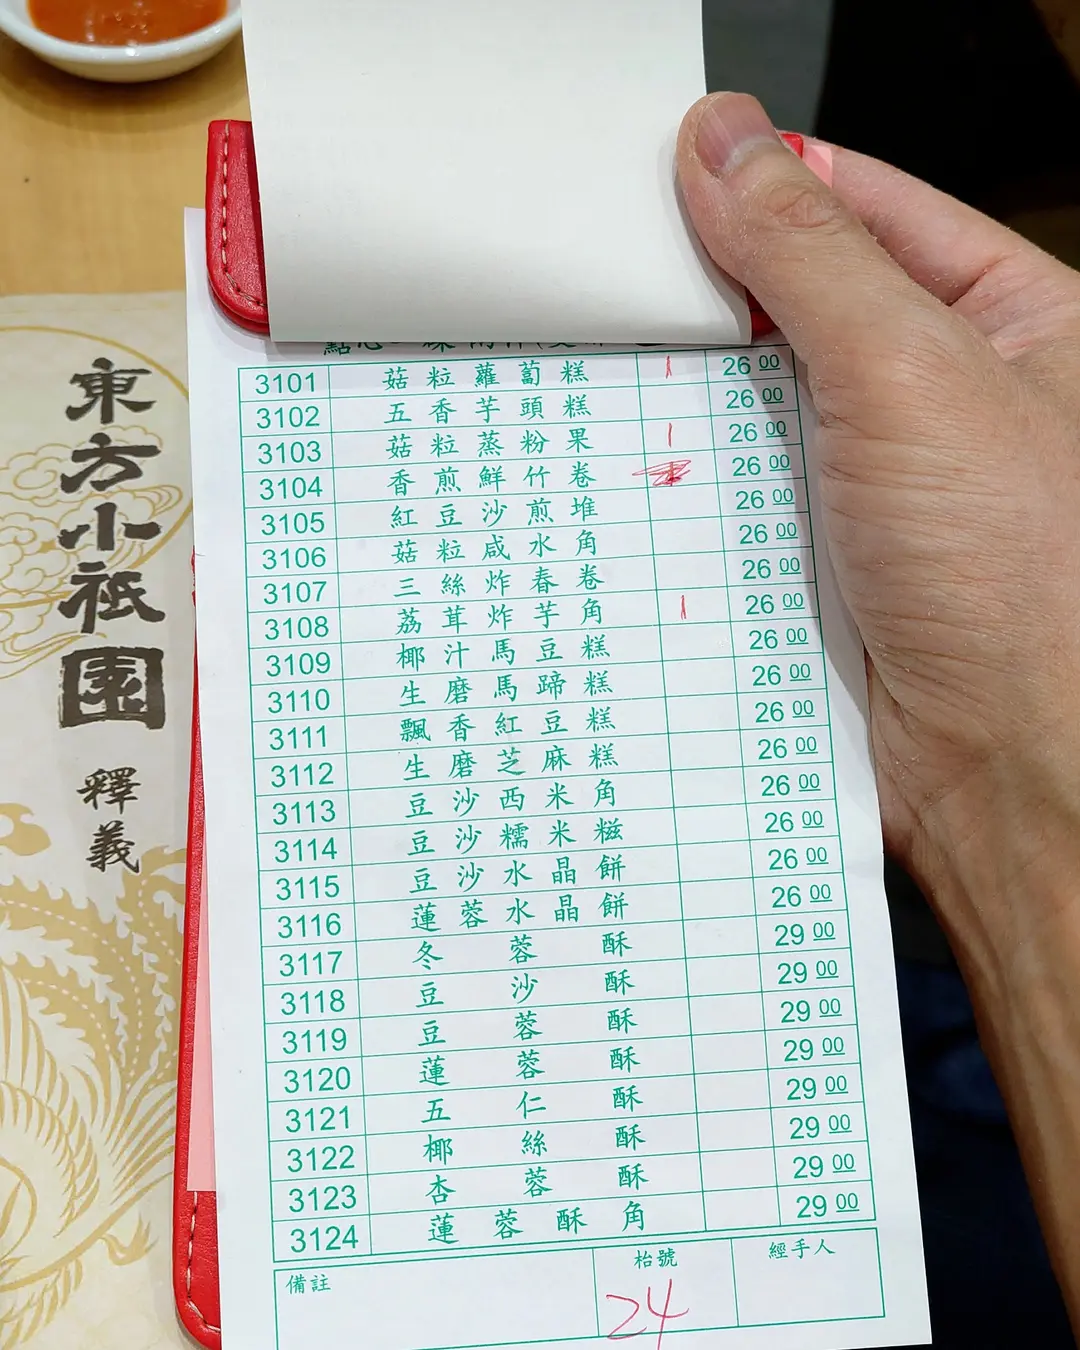 東方小祇園
釋義
3101 菇粒蘿蔔糕 1 26 00
3102 五香芋頭糕 26 00
3103 菇粒蒸粉果 1 26 00
3104 香煎鮮竹卷 26 00
3105 紅豆沙煎堆 26 00
3106 菇粒咸水角 26 00
3107 三絲炸春卷 26 00
3108 荔茸炸芋角 1 26 00
3109 椰汁馬豆糕 26 00
3110 生磨馬蹄糕 26 00
3111 飄香紅豆糕 26 00
3112 生磨芝麻糕 26 00
3113 豆沙西米角 26 00
3114 豆沙糯米糍 26 00
3115 豆沙水晶餅 26 00
3116 蓮蓉水晶餅 26 00
3117 冬蓉酥 29 00
3118 豆沙酥 29 00
3119 豆蓉酥 29 00
3120 蓮蓉酥 29 00
3121 五仁酥 29 00
3122 椰絲酥 29 00
3123 杏蓉酥 29 00
3124 蓮蓉酥角 29 00
備註 枱號 經手人
24